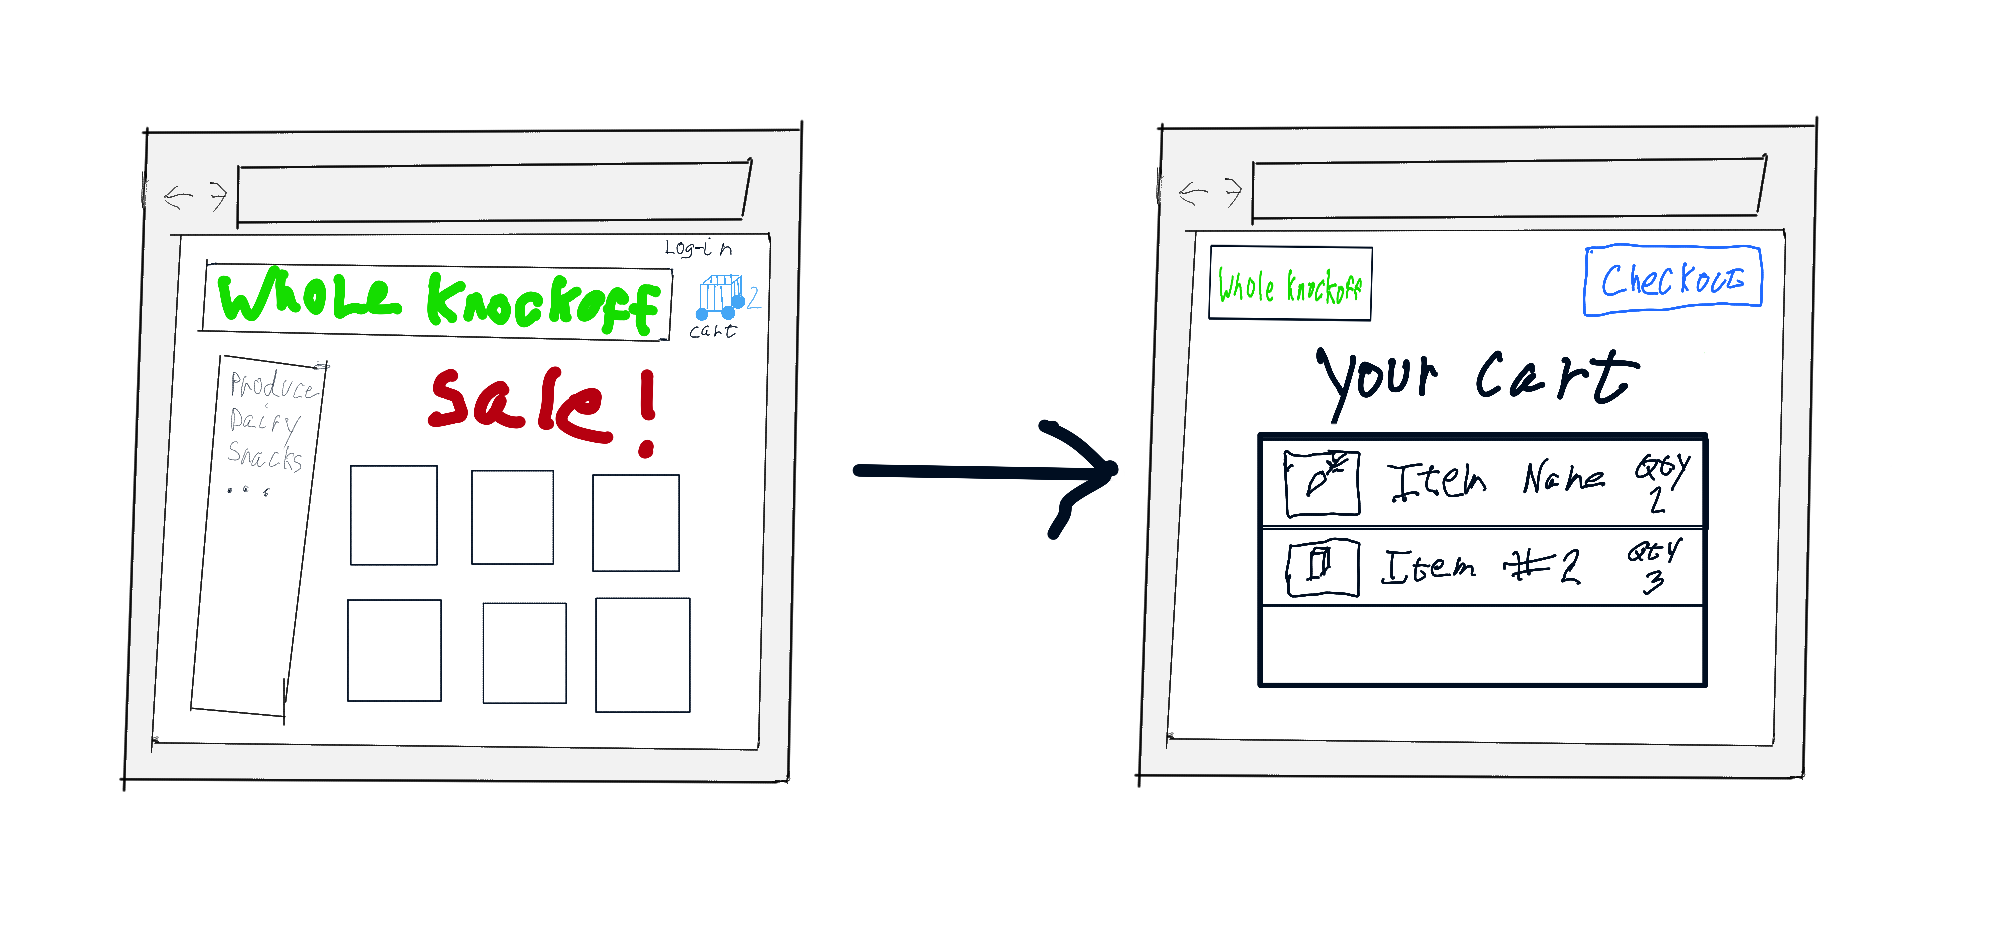 Log-in
Whole Knockoff
2
cart
Produce
Dairy
Snacks
...
Sale!
Whole Knockoff
Checkout
Your Cart
Item Name Qty
2
Item #2 Qty
3